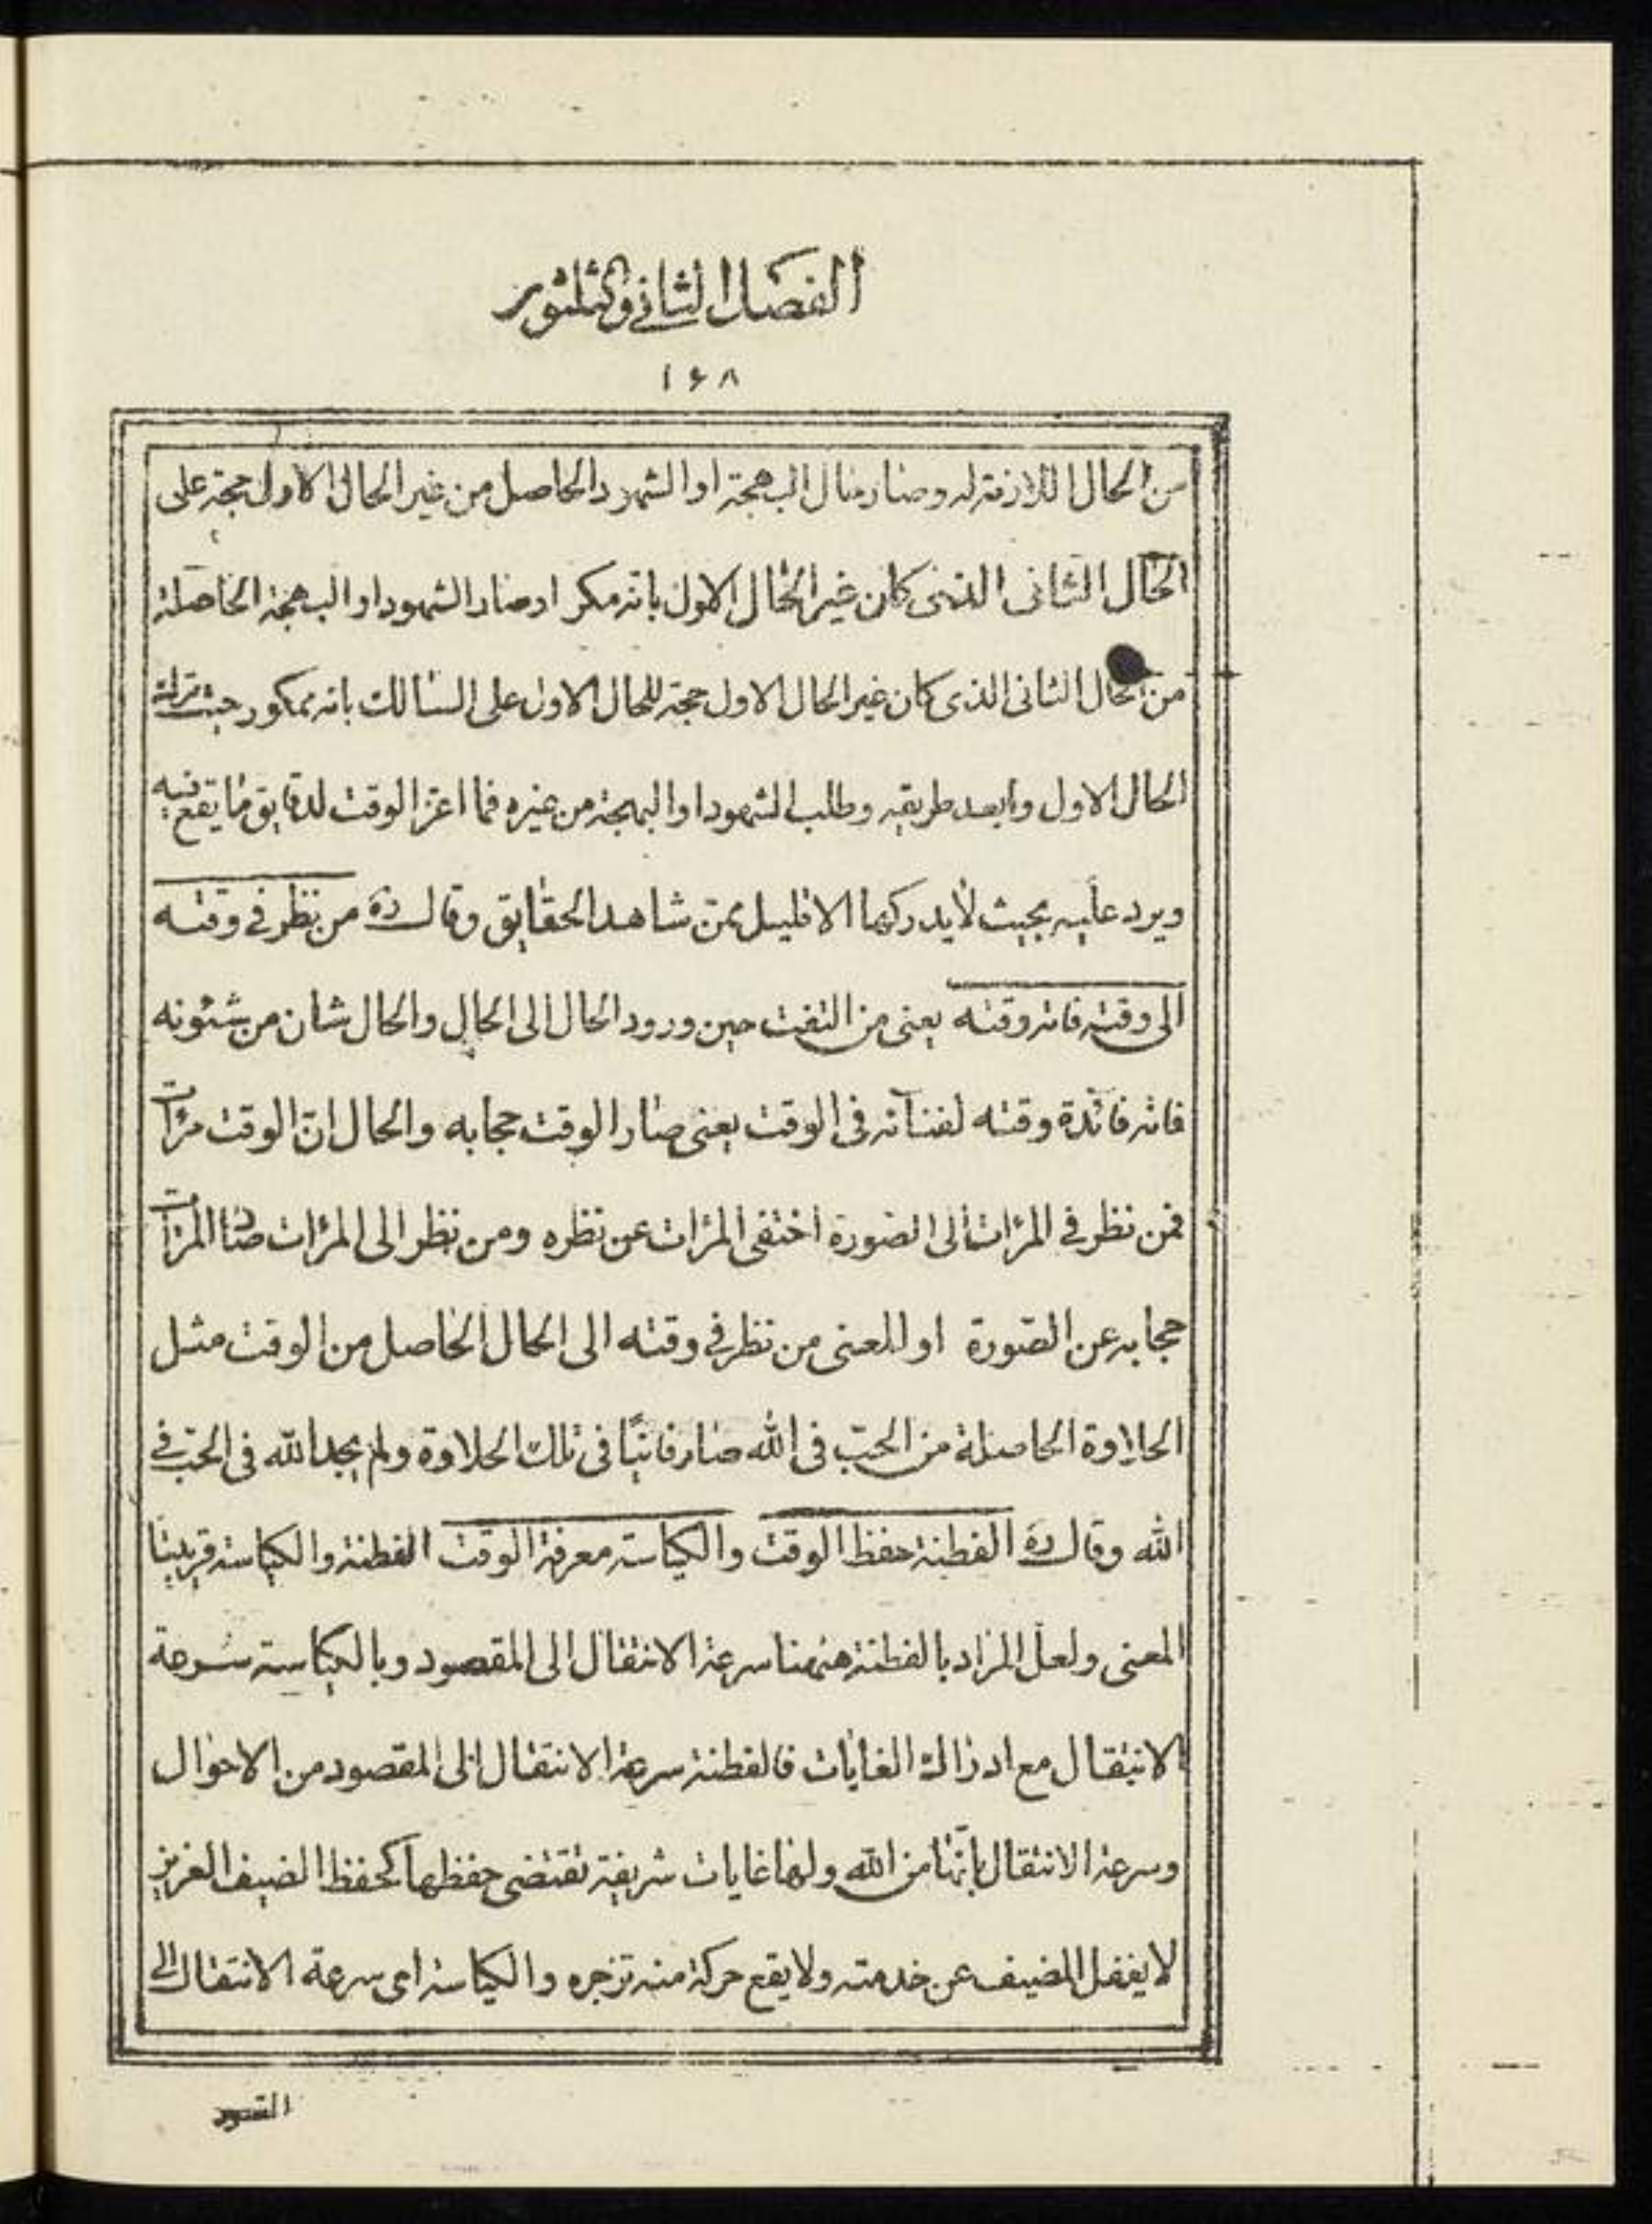 الفصل الثانی والثلثون
۱۶۸
من الحال اللازمة له وصار منال البهجة او الشهود الحاصل من غير الحال الاول حجة على
الحال الثانی الذی كان غير الحال الاول بانه مكر او صار الشهود او البهجة الحاصلة
من الحال الثانی الذی كان غير الحال الاول حجة للحال الاول على السالك بانه ممكور حيث ترك
الحال الاول وابعد طريقه وطلب الشهود او البهجة من غيره فما اعز الوقت لدقايق ما يقع فيه
ويرد عليه بحيث لا يدركها الا قليل ممن شاهد الحقايق وقال ره من نظر فی وقته
الى وقته فاته وقته يعنی من التفت حين ورود الحال الى الحال والحال شان من شئونه
فاته فائدة وقته لفنائه فی الوقت يعنی صار الوقت حجابه والحال ان الوقت مرات
فمن نظر فی المرات الى الصورة اختفى المرات عن نظره ومن نظر الى المرات صار المرات
حجابه عن الصورة او المعنى من نظر فی وقته الى الحال الحاصل من الوقت مثل
الحلاوة الحاصلة من الحبّ فی الله صار فانيًا فی تلك الحلاوة ولم يجد الله فی الحبّ فی
الله وقال ره الفطنة حفظ الوقت والكياسة معرفة الوقت الفطنة والكياسة قريبتا
المعنى ولعل المراد بالفطنة هيهنا سرعة الانتقال الى المقصود وبالكياسة سرعة
الانتقال مع ادراك الغايات فالفطنة سرعة الانتقال الى المقصود من الاحوال
وسرعة الانتقال بانّها من الله ولها غايات شريفة تقتضی حفظها كحفظ الضيف العزيز
لا يغفل المضيف عن خدمته ولا يقع حركة منه تزجره والكياسة ای سرعة الانتقال الى